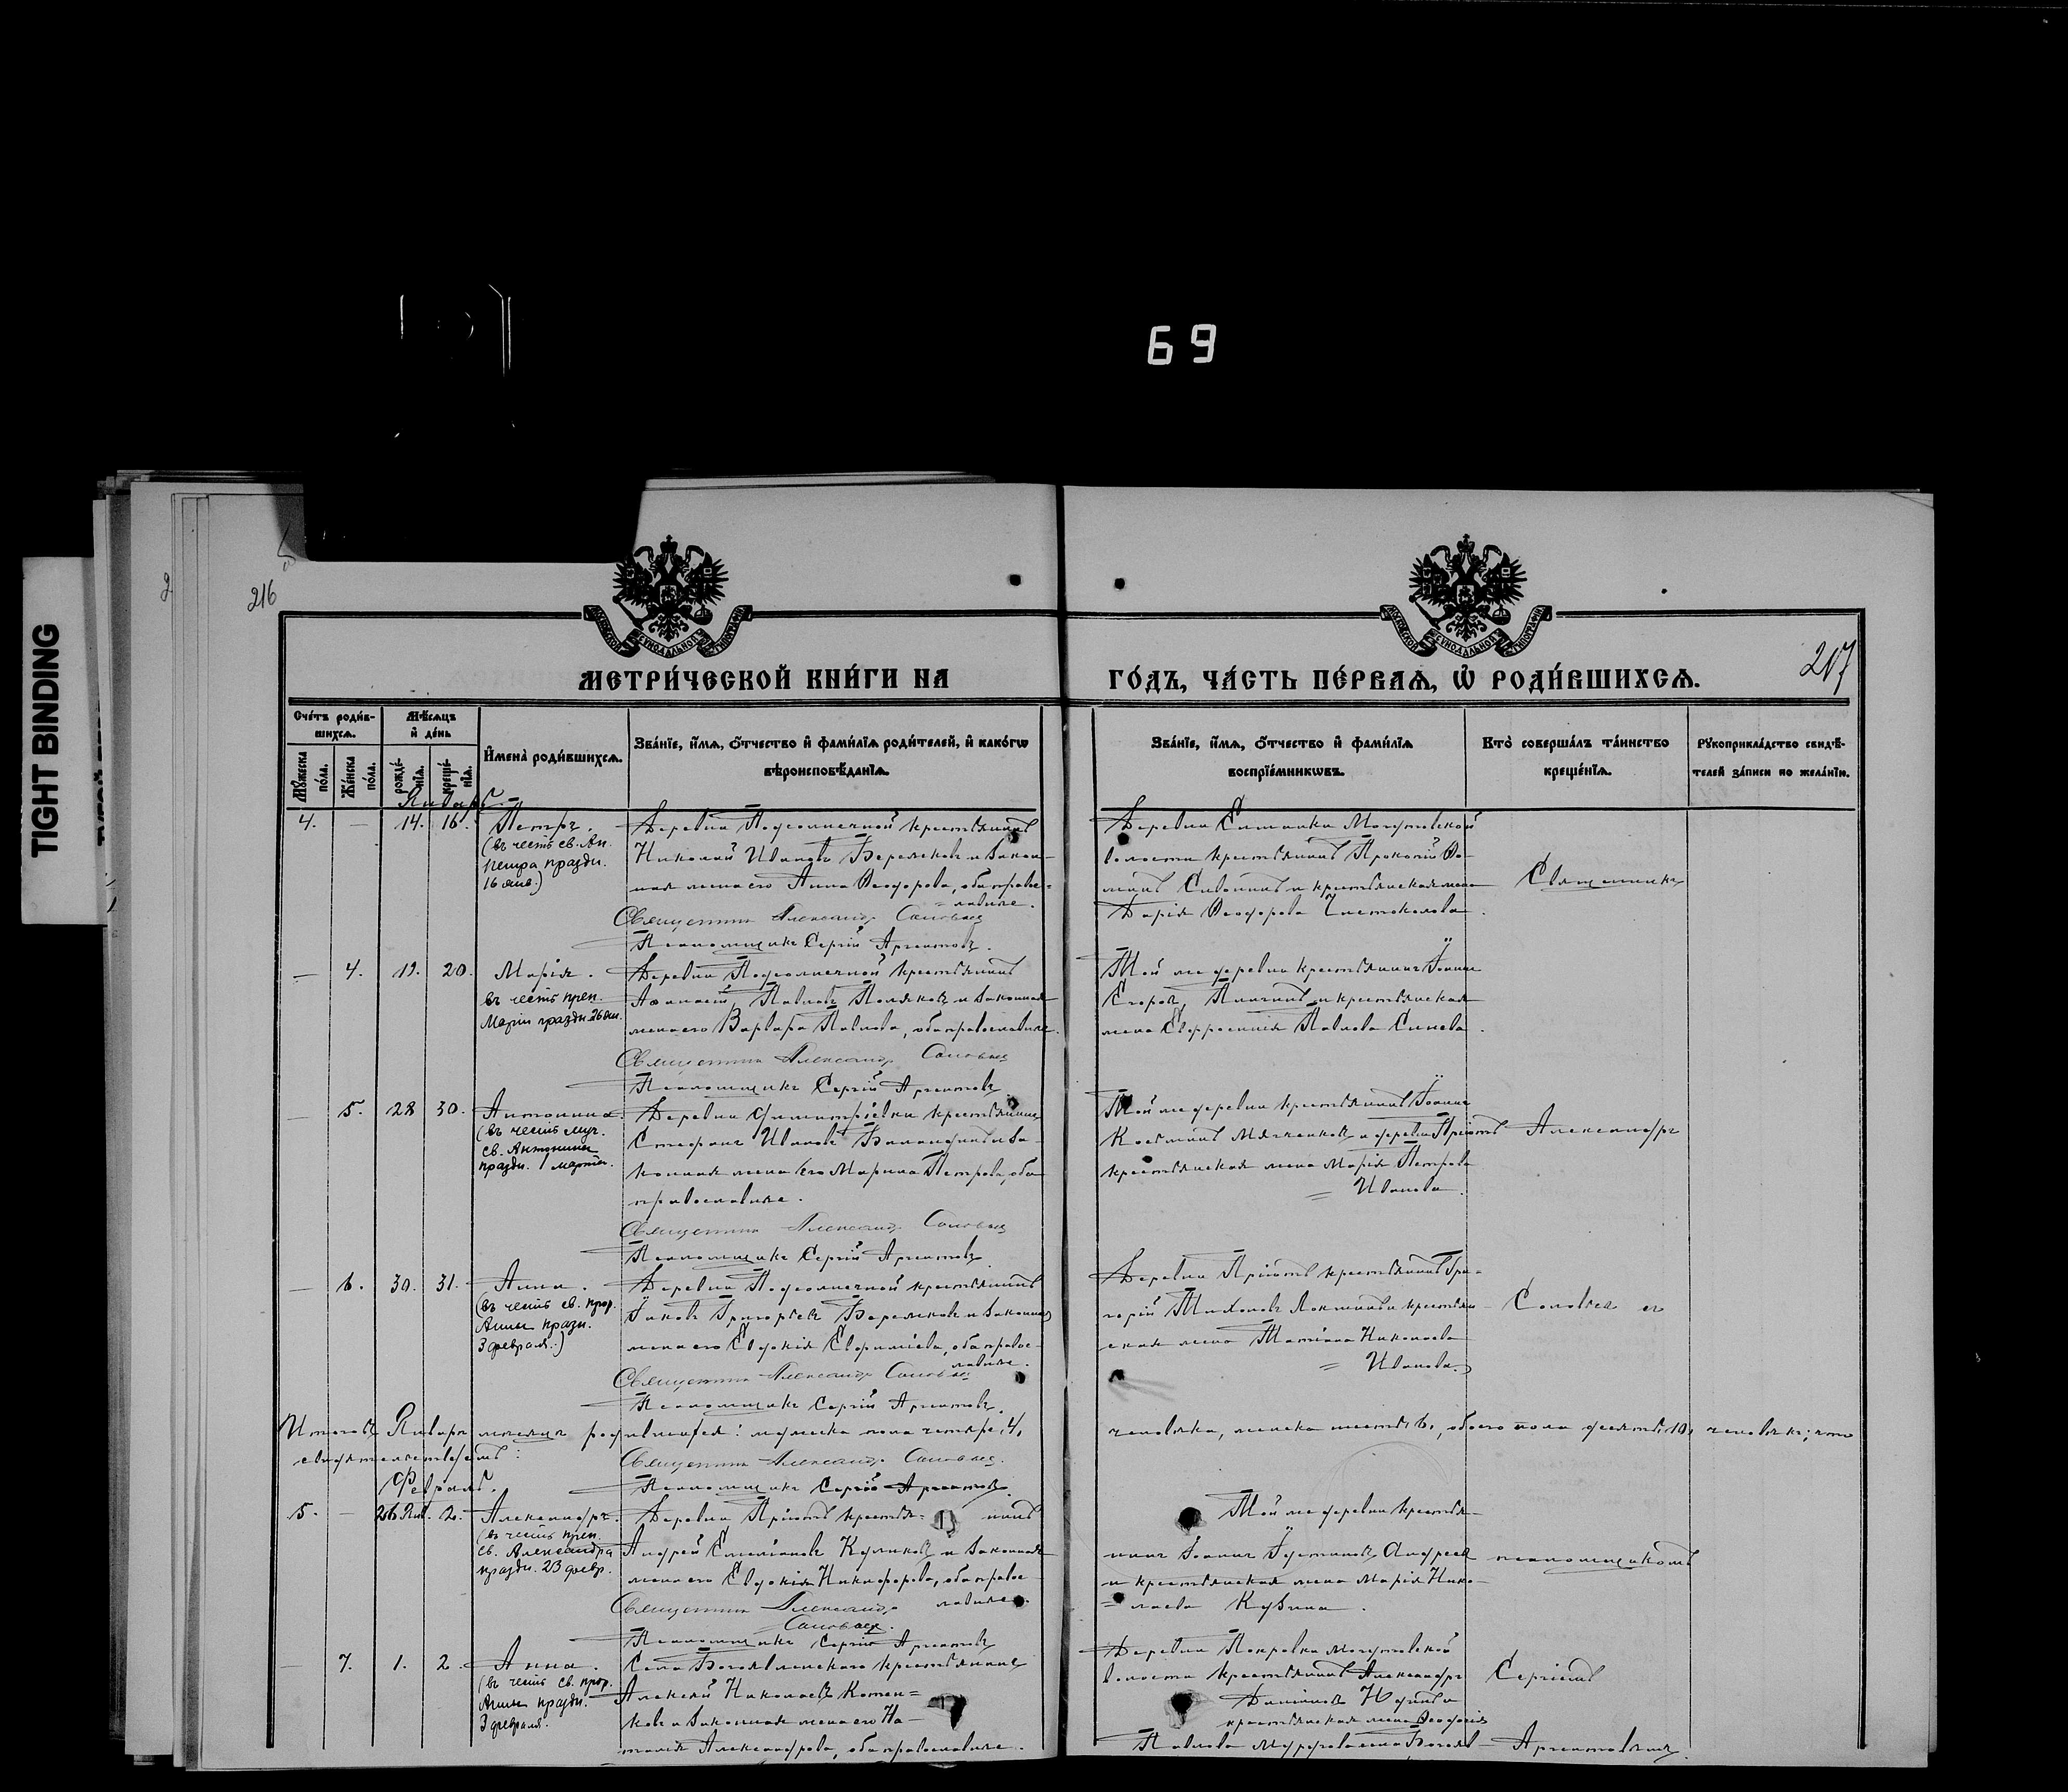 69
TIGHT BINDING
2
216
217
МОСКОВСКОЙ СѴНОДАЛЬНОЙ ТИПОГРАФІИ
МОСКОВСКОЙ СѴНОДАЛЬНОЙ ТИПОГРАФІИ
МЕТРИ́ЧЕСКОЙ КНИ́ГИ НА ГО́ДЪ, ЧА́СТЬ ПЕ́РВАѦ, Ѽ РОДИ́ВШИХСѦ.
Сче́тъ роди́в-
шихсѧ.
Мꙋ́жеска по́ла.
Же́нска по́ла.
Мѣ́сѧцъ
и҆ де́нь
рожде́-
нїѧ.
креще́-
нїѧ.
И҆мена̀ роди́вшихсѧ.
Зва́нїе, и҆́мѧ, ѻ҆́тчество и҆ фами́лїѧ роди́телей, и҆ како́гѡ
вѣроисповѣ́данїѧ.
Зва́нїе, и҆́мѧ, ѻ҆́тчество и҆ фами́лїѧ
воспрїе́мникѡвъ.
Кто̀ соверша́лъ та́инство
креще́нїѧ.
Рꙋкоприкла́дство свидѣ́-
телей за́писи по жела́нїю.
Январь
4. — 14. 16. Петръ.
(въ честь св. Ап.
Петра праздн.
16 янв.)
Деревни Подсолнечной крестьянинъ
Николай Ивановъ и закон-
ная жена его Анна Ѳеодорова, оба право-
славные.
Священникъ Александръ Соловьевъ
Псаломщикъ Сергій Аргентовъ.
волости крестьянинъ Прокопій Ѳо-
минъ и крестьянская жена
Дарія Ѳеодорова
Священникъ
— 4. 19. 20. Марія.
въ честь преп.
Маріи праздн. 26 ян.
Деревни Подсолнечной крестьянинъ
Аѳанасій Павловъ Поляковъ и законная
жена его Варвара Павлова, оба православные.
Священникъ Александръ Соловьевъ
Псаломщикъ Сергій Аргентовъ
Той же деревни крестьянинъ Іоаннъ
Егоровъ и крестьянская
жена Евфросинія Павлова
— 5. 28 30. Антонина.
(въ честь муч.
св. Антонины
праздн. 1 марта.
Деревни Димитріевки крестьянинъ
Стефанъ Ивановъ и за-
конная жена его Марина Петрова, оба
православные.
Священникъ Александръ Соловьевъ
Псаломщикъ Сергій Аргентовъ
Той же деревни крестьянинъ Іоаннъ
Косминъ и деревни Пріютъ
крестьянская жена Марія Петрова
= Иванова.
Александръ
— 6. 30. 31. Анна.
(въ честь св. прор.
Анны праздн.
3 февраля.)
Деревни Подсолнечной крестьянинъ
Іаковъ Григорьевъ и законная
жена его Евдокія Евфиміева, оба право-
славные.
Священникъ Александръ Соловьевъ
Псаломщикъ Сергій Аргентовъ.
Деревни Пріютъ крестьянинъ Гри-
горій Тихоновъ и крестьян-
ская жена Татіана Николаева
= Иванова.
Соловьевъ съ
Итого въ Январѣ мѣсяцѣ родившихся: мужеска пола четыре, 4, человѣка, женска шесть, 6, обоего пола десять, 10, человѣкъ; что
свидѣтельствуемъ:
Священникъ Александръ Соловьевъ.
Псаломщикъ Сергій Аргентовъ.
Февраль.
5. — 26 Янв. 2. Александръ.
(въ честь преп.
св. Александра
праздн. 23 февр.
Деревни Пріютъ крестья- нинъ
Андрей Емеліановъ Куликовъ и законная
жена его Евдокія Никифорова, оба право-
славные.
Священникъ Александръ
Соловьевъ.
Псаломщикъ Сергій Аргентовъ
Той же деревни крестья-
нинъ Іоаннъ Іустиновъ Андреевъ
и крестьянская жена Марія Нико-
= лаева
псаломщикомъ
— 7. 1. 2. Анна.
(въ честь св. прор.
Анны праздн.
3 февраля.
Села Богоявленскаго крестьянинъ
Алексѣй Николаевъ Котен-
ковъ и законная жена его На-
талія Александрова, оба православные.
Деревни Покровки
волости крестьянинъ Александръ
крестьянская жена Ѳеодосія
Павлова
Сергіемъ
Аргентовымъ.